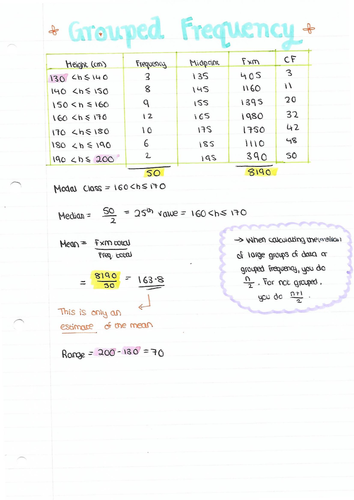 Grouped Frequency
Height (cm) Frequency Midpoint Fxm CF
130 < h ≤ 140 3 135 405 3
140 < h ≤ 150 8 145 1160 11
150 < h ≤ 160 9 155 1395 20
160 < h ≤ 170 12 165 1980 32
170 < h ≤ 180 10 175 1750 42
180 < h ≤ 190 6 185 1110 48
190 < h ≤ 200 2 195 390 50
50 8190
Modal Class = 160 < h ≤ 170
Median = 50/2 = 25th value = 160 < h ≤ 170
Mean = Fxm total / Freq. total
= 8190/50 = 163.8
This is only an
estimate of the mean
Range = 200 - 130 = 70
→ When calculating the median
of large groups of data or
grouped frequency, you do
n/2. For not grouped,
you do n+1/2.